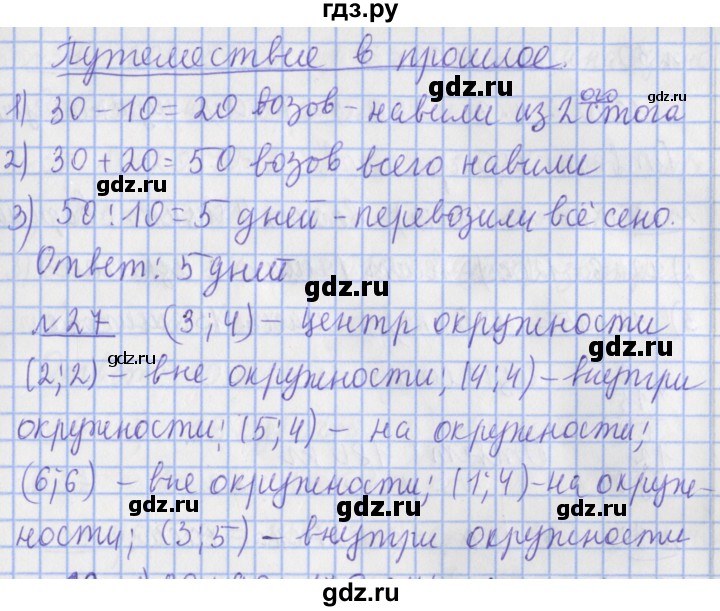 гдз.ру
Путешествие в прошлое.
gdz.ru
1) 30 – 10 = 20 возов – навили из 2ого стога
gdz.ru
2) 30 + 20 = 50 возов всего навили
gdz.ru
3) 50 : 10 = 5 дней – перевозили всё сено.
gdz.ru
Ответ: 5 дней
gdz.ru
№27 (3;4) – центр окружности
gdz.ru
gdz.ru
(2;2) – вне окружности; (4;4) – внутри
окружности; (5;4) – на окружности;
gdz.ru
gdz.ru
(6;6) – вне окружности; (1;4) – на окруж-
ности; (3;5) – внутри окружности
gdz.ru